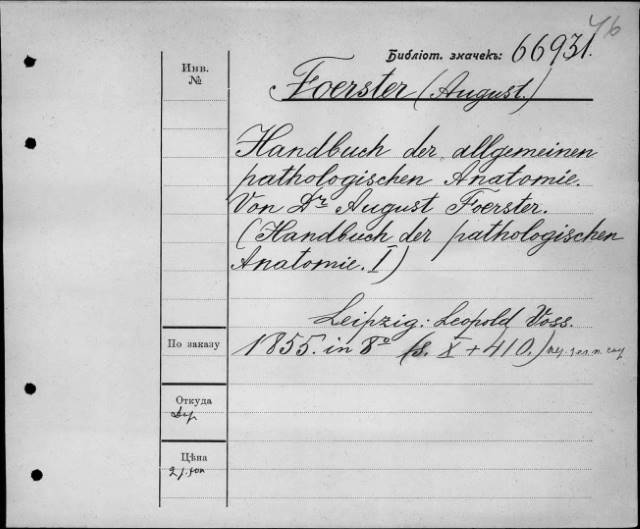 46
Библіот. значекъ: 66931.
Инв.
№
Foerster (August.)
Handbuch der allgemeinen
pathologischen Anatomie.
Von Dr August Foerster.
(Handbuch der pathologischen
Anatomie. I)
Leipzig: Leopold Voss.
1855. in 8º (S. X + 410.)
По заказу
Откуда
Цѣна